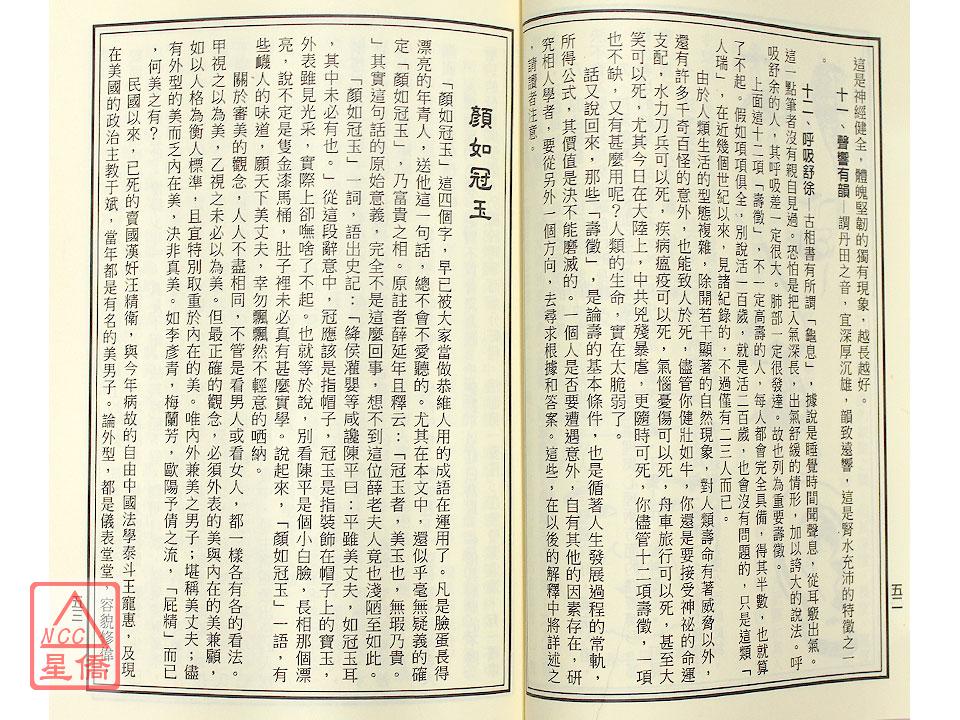 這是神經健全,體魄堅韌的獨有現象,越長越好。
十一、聲響有韻—謂丹田之音,宜深厚沉雄,韻致遠響,這是腎水充沛的特徵之一
。
十二、呼吸舒徐—古相書有所謂「龜息」,據說是睡覺時間聞聲息,從耳竅出氣。
這一點筆者沒有親自見過。恐怕是把人氣深長,出氣舒緩的情形,加以誇大的說法。呼
吸舒余的人,其呼吸差一定很大。肺部一定很發達。故也列為重要壽徵。
上面這十二項「壽徵」,不一定高壽的人,每人都會完全具備,得其半數,也就算
了不起。假如項項俱全,別說活一百歲,就是活二百歲,也會沒有問題的,只是這類「
人瑞」,在近幾個世紀以來,見諸紀錄的,不過僅有二三人而已。
由於人類生活的型態複雜,除開若干顯著的自然現象,對人類壽命有著威脅以外,
還有許多千奇百怪的意外,也能致人於死,儘管你健壯如牛,你還是要接受神祕的命運
支配,水力刀兵可以死,疾病瘟疫可以死,氣惱憂傷可以死,舟車旅行可以死,甚至大
笑可以死,尤其今日在大陸上,中共兇殘暴虐,更隨時可死,你儘管十二項壽徵,一項
也不缺,又有甚麼用呢?人類的生命,實在太脆弱了。
話又說回來,那些「壽徵」,是論壽的基本條件,也是循著人生發展過程的常軌,
所得公式,其價值是決不能磨滅的。一個人是否要遭遇意外,自有其他的因素存在,研
究相人學者,要從另外一個方向,去尋求根據和答案。這些,在以後的解釋中將詳述之
,請讀者注意。
五二
顏如冠玉
「顏如冠玉」這四個字,早已被大家當做恭維人用的成語在運用了。凡是臉蛋長得
漂亮的年青人,送他這一句話,總不會不愛聽的。尤其在本文中,還似乎毫無疑義的確
定「顏如冠玉」,乃富貴之相。原註者薛延年且釋云:「冠玉者,美玉也,無瑕乃貴。
」其實這句話的原始意義,完全不是這麼回事,想不到這位薛老夫人竟也淺陋至如此。
「顏如冠玉」一詞,語出史記:「絳侯灌嬰等咸讒陳平曰:平雖美丈夫,如冠玉耳
,其中未必有也。」從這段辭意中,冠應該是指帽子,冠玉是指裝飾在帽子上的寶玉,
外表雖見光采,實際上卻嘸啥了不起。也就等於說,別看陳平是個小白臉,長相那個漂
亮,說不定是隻金漆馬桶,肚子裡未必真有甚麼實學。說起來,「顏如冠玉」一語,有
些譏人的味道,願天下美丈夫,幸勿飄飄然不輕意的哂納。
關於審美的觀念,人人不盡相同,不管是看男人或看女人,都一樣各有各的看法。
甲視之以為美,乙視之未必以為美。但最正確的觀念,必須外表的美與內在的美兼顧,
如以人格為衡人標準,且宜特別取重於內在的美。唯內外兼美之男子;堪稱美丈夫;儘
有外型的美而乏內在美,決非真美。如李彥青,梅蘭芳,歐陽予倩之流,「屁精」而已
,何美之有?
民國以來,已死的賣國漢奸汪精衛,與今年病故的自由中國法學泰斗王寵惠,及現
在美國的政治主教于斌,當年都是有名的美男子。論外型,都是儀表堂堂,容貌修偉
五三
NCC
星僑